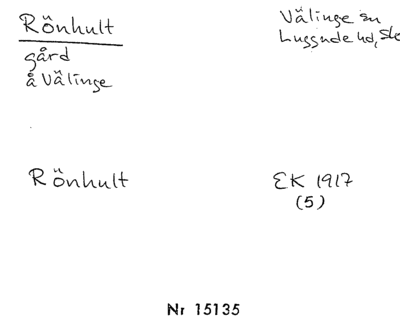 Rönhult
gård
å Välinge
Välinge sn
Luggude hd,
Rönhult
EK 1917
(5)
Nr 15135